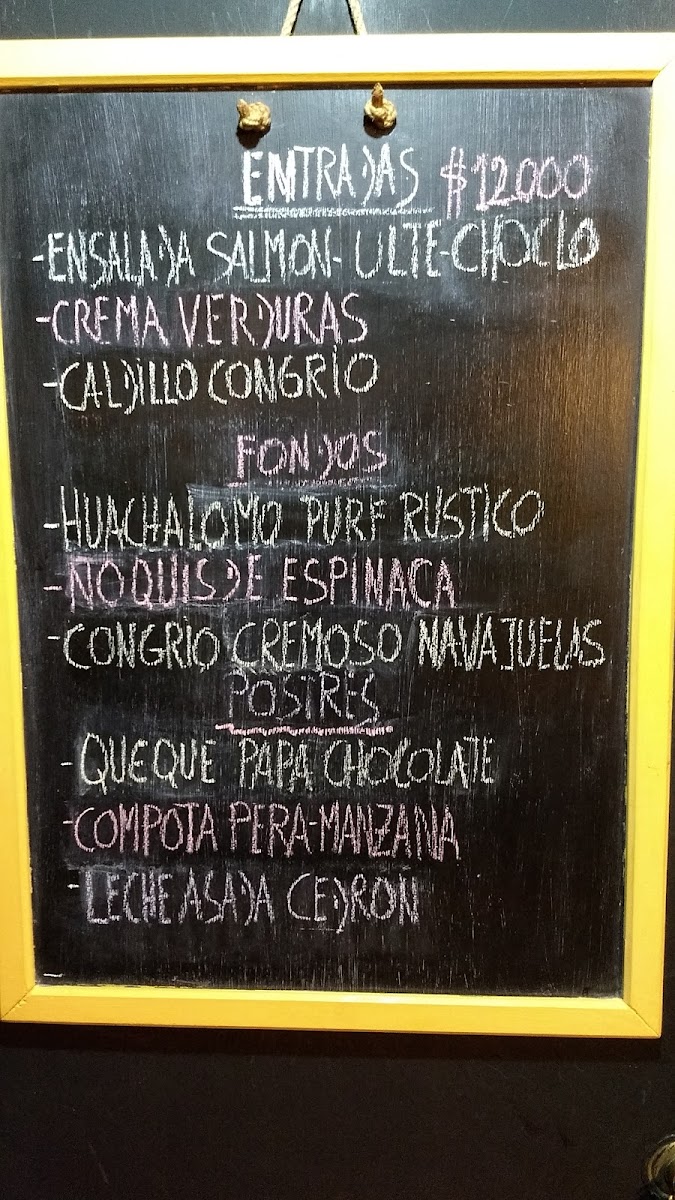 ENTRADAS $12000
-ENSALADA SALMON-ULTE-CHOCLO
-CREMA VERDURAS
-CALDILLO CONGRIO
FONDOS
-HUACHALOMO PURE RUSTICO
-ÑOQUIS DE ESPINACA
-CONGRIO CREMOSO NAVAJUELAS
POSTRES
-QUEQUE PAPA CHOCOLATE
-COMPOTA PERA-MANZANA
-LECHE ASADA CEDRON